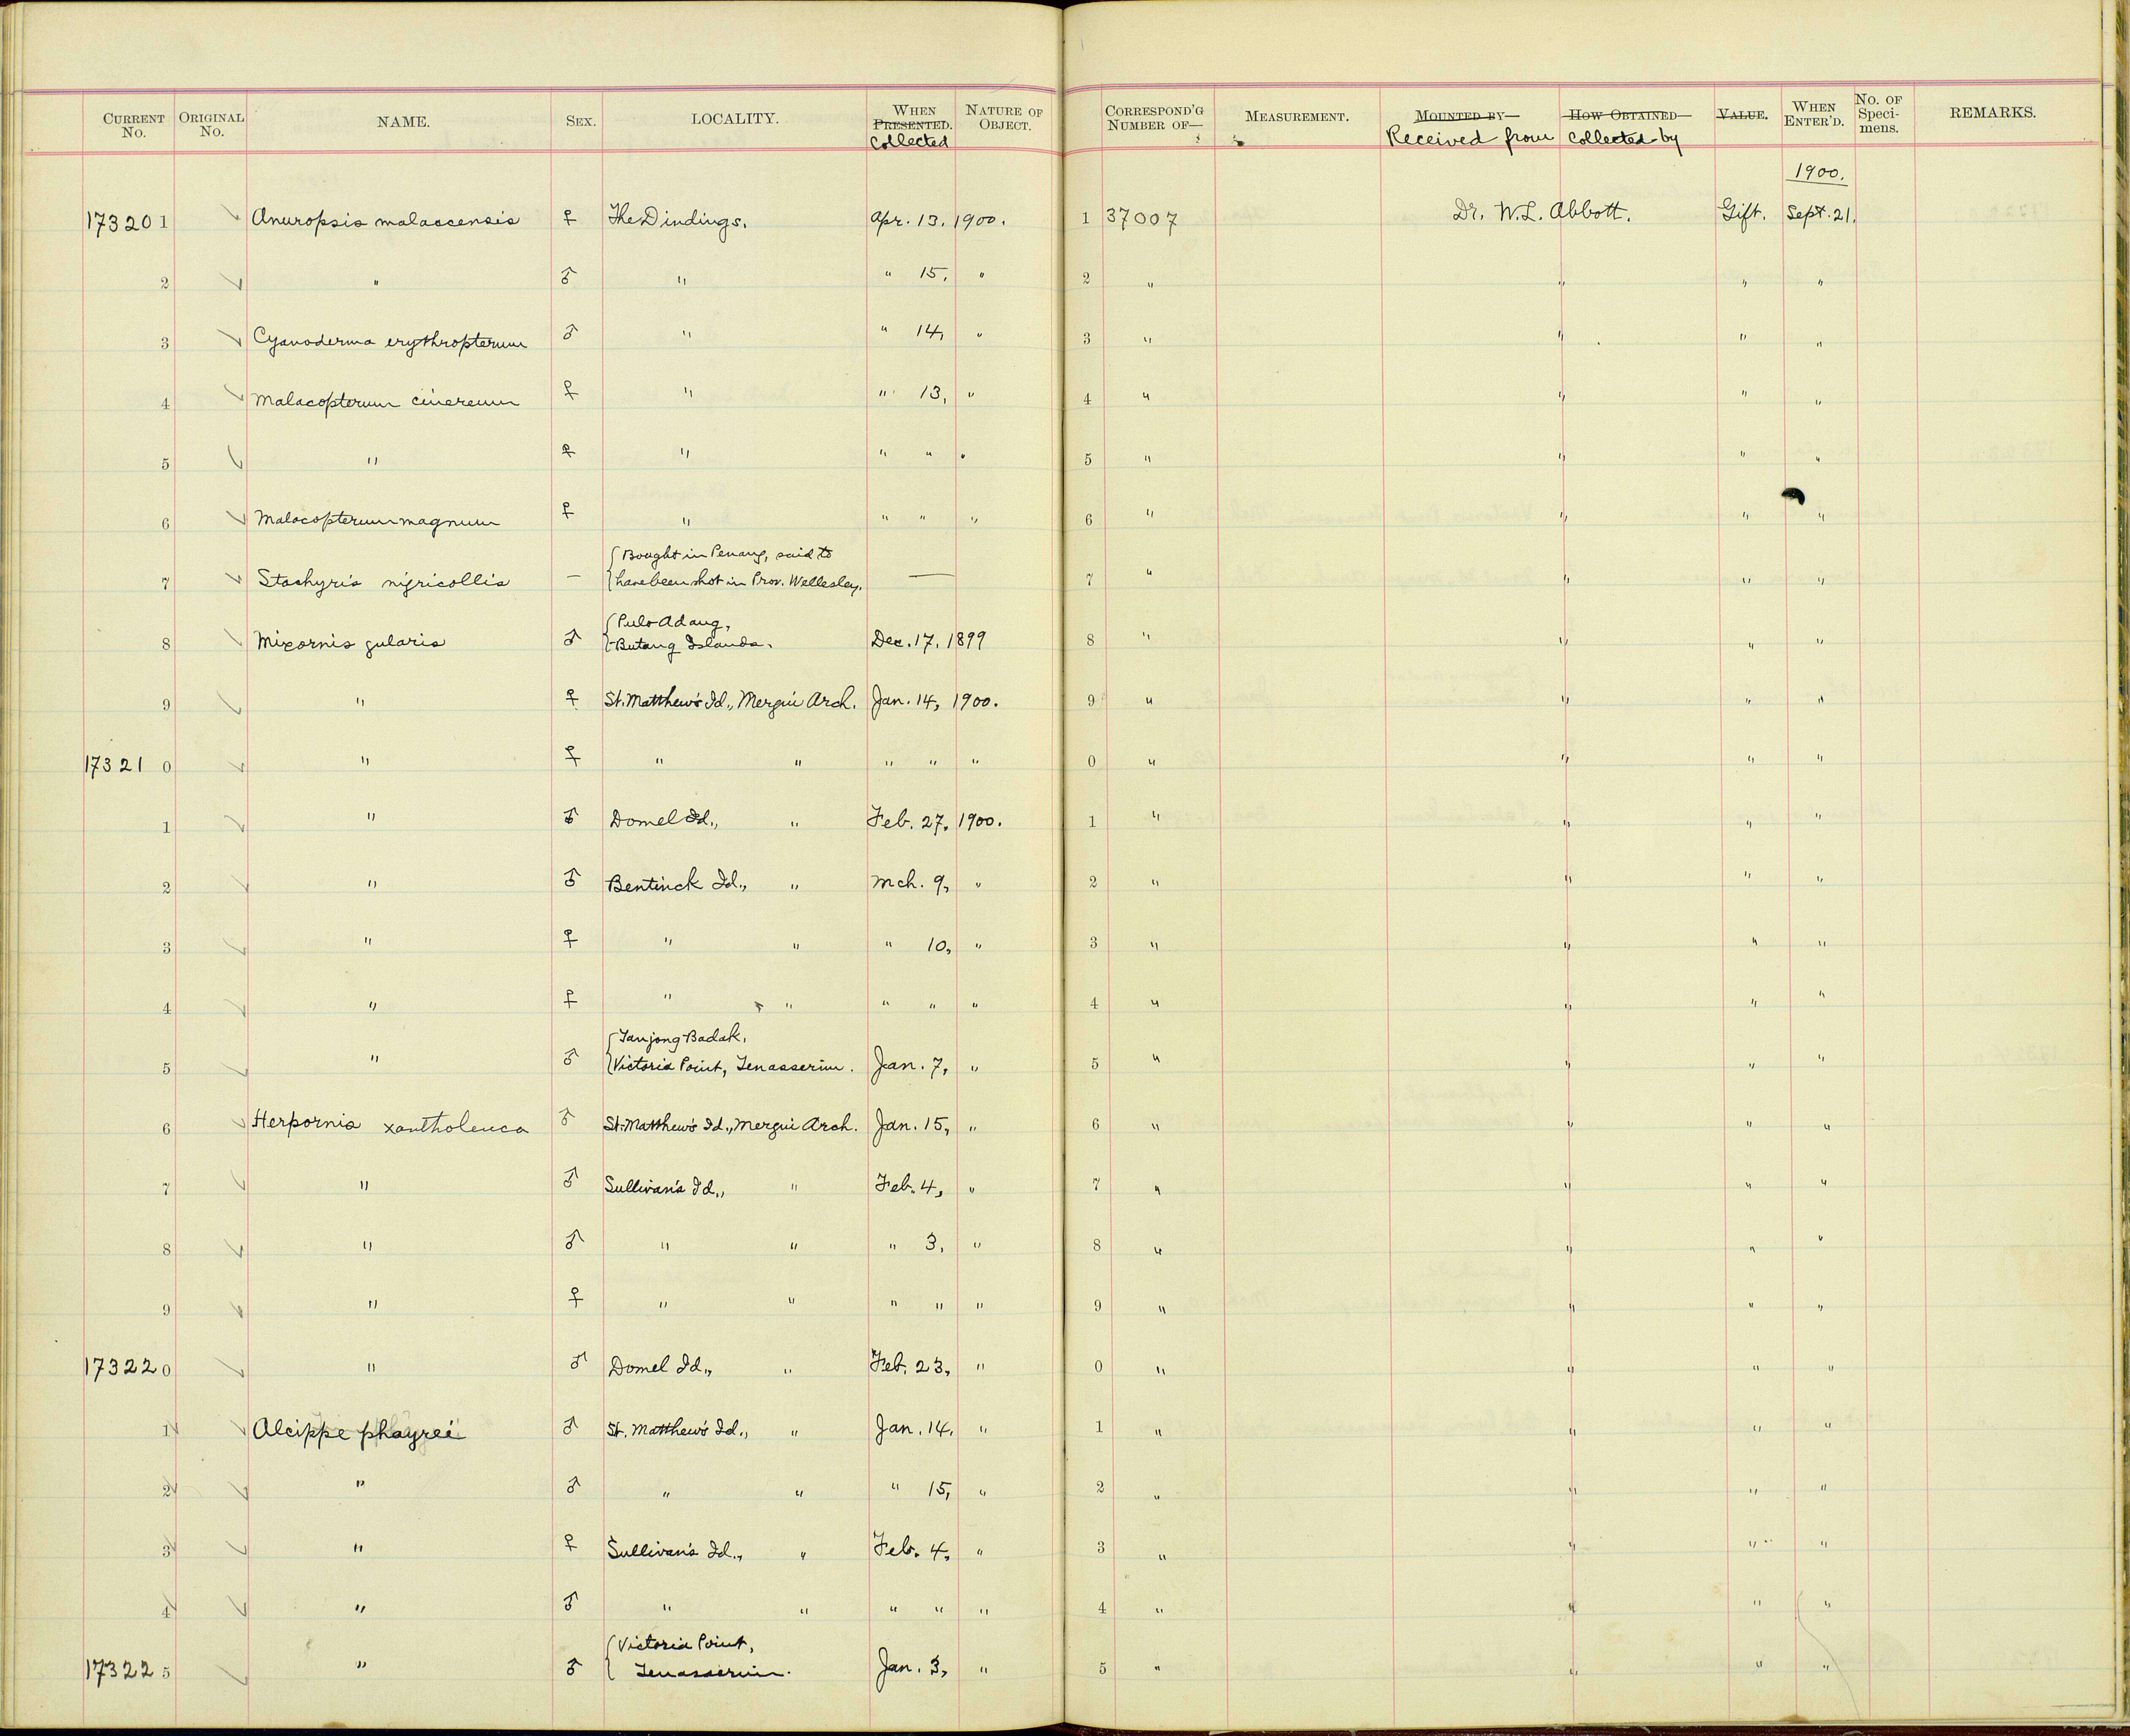 CURRENT No. ORIGINAL No. NAME. SEX. LOCALITY. WHEN PRESENTED. Collected NATURE OF OBJECT. CORRESPOND'G NUMBER OF— MEASUREMENT. MOUNTED BY— Received from HOW OBTAINED— Collected by VALUE. WHEN ENTER'D. No. OF Speci-mens. REMARKS.
1900.
173201 ✓ Anuropsis malaccensis ♀ The Dindings. Apr. 13, 1900. 1 37007 Dr. W.L. Abbott. Gift. Sept. 21.
2 ✓ " ♂ " " 15, " 2 " " " "
3 ✓ Cyanoderma erythropterum ♂ " " 14, " 3 " " " "
4 ✓ Malacopterum cinereum ♀ " " 13, " 4 " " " "
5 ✓ " ♀ " " " " 5 " " " "
6 ✓ Malacopterum magnum ♀ " " " " 6 " " " "
{Bought in Penang, said to
7 ✓ Stachyris nigricollis — have been shot in Prov. Wellesley. — 7 " " " "
{Pulo Adang,
8 ✓ Mixornis gularis ♂ Butang Islands. Dec. 17, 1899 8 " " " "
9 ✓ " ♀ St. Matthew's Id., Mergui Arch. Jan. 14, 1900. 9 " " " "
173210 ✓ " ♀ " " " " " 0 " " " "
1 ✓ " ♂ Domel Id., " Feb. 27, 1900. 1 " " " "
2 ✓ " ♂ Bentinck Id., " Mch. 9, " 2 " " " "
3 ✓ " ♀ " " " 10, " 3 " " " "
4 ✓ " ♀ " " " " " 4 " " " "
{Tanjong Badak,
5 ✓ " ♂ Victoria Point, Tenasserim. Jan. 7, " 5 " " " "
6 ✓ Herpornis xantholeuca ♂ St. Matthew's Id., Mergui Arch. Jan. 15, " 6 " " " "
7 ✓ " ♂ Sullivan's Id., " Feb. 4, " 7 " " " "
8 ✓ " ♂ " " " 3, " 8 " " " "
9 ✓ " ♀ " " " " " 9 " " " "
173220 ✓ " ♂ Domel Id., " Feb. 23, " 0 " " " "
1 ✓ Alcippe phayrei ♂ St. Matthew's Id., " Jan. 14, " 1 " " " "
2 ✓ " ♂ " " " 15, " 2 " " " "
3 ✓ " ♀ Sullivan's Id., " Feb. 4, " 3 " " " "
4 ✓ " ♂ " " " " " 4 " " " "
{Victoria Point,
173225 ✓ " ♂ Tenasserim. Jan. 3, " 5 " " " "